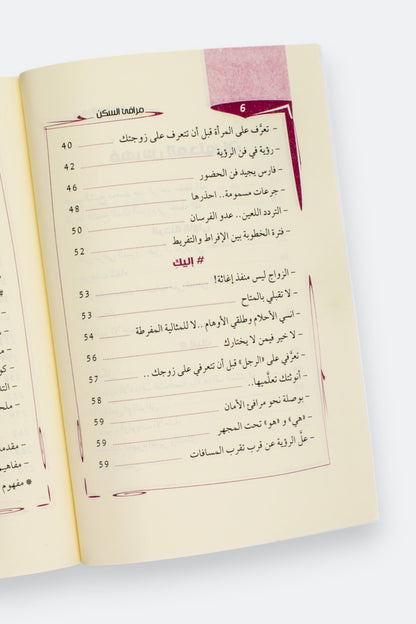 مرافئ السكن
6
- تعرَّف على المرأة قبل أن تتعرف على زوجتك 40
- رؤية في فن الرؤية 42
- فارس يجيد فن الحضور 46
- جرعات مسمومة.. احذرها 48
- التردد اللعين.. عدو الفرسان 50
- فترة الخطوبة بين الإفراط والتفريط 52
# إليك
- الزواج ليس منفذ إغاثة! 53
- لا تقبلي بالمتاح 53
- انسي الأحلام وطلقي الأوهام ..لا للمثالية المفرطة 54
- لا خير فيمن لا يختارك 56
- تعرَّفي على «الرجل» قبل أن تتعرفي على زوجك .. 57
- أنوثتك تعلَّميها.. 58
- بوصلة نحو مرافئ الأمان 59
- «هي» و «هو» تحت المجهر 59
- علَّ الرؤية عن قرب تقرب المسافات 59
- مقدمة
- مفاهيم
* مفهوم